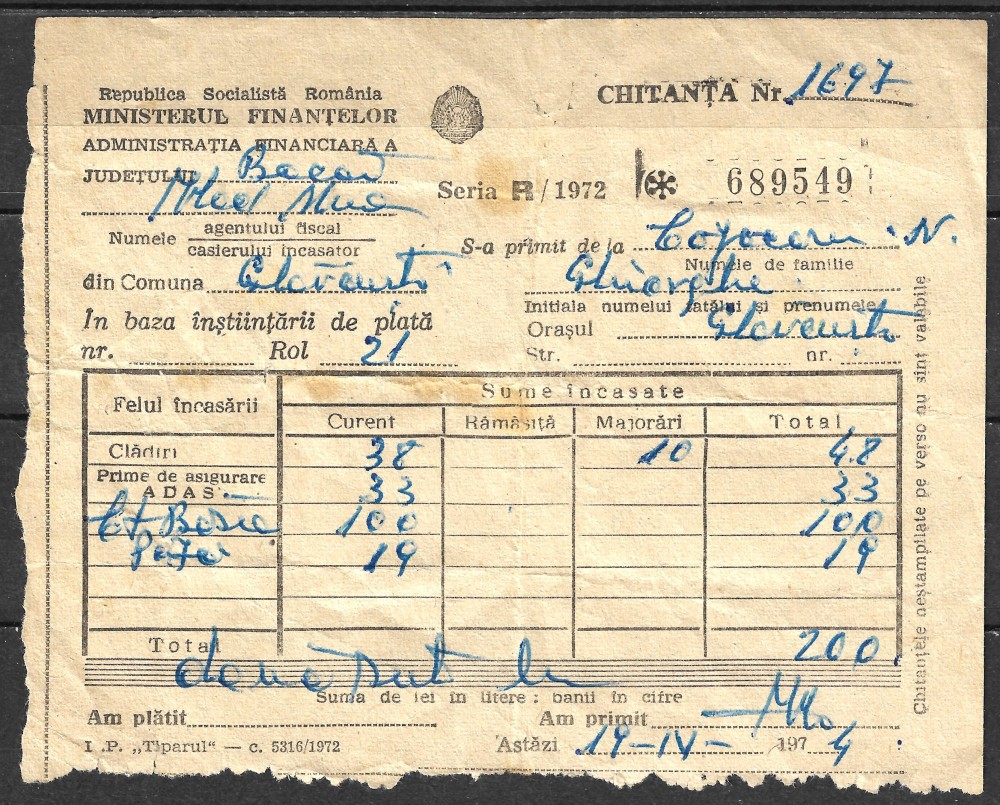 Republica Socialistă România
MINISTERUL FINANȚELOR
ADMINISTRAȚIA FINANCIARĂ A
JUDEȚULUI Bacău
CHITANȚA Nr. 1697
Seria R/1972 689549
Numele agentului fiscal
casierului încasator
S-a primit de la Cojocaru N.
Numele de familie
din Comuna Glăvănești
Gheorghe
Inițiala numelui tatălui și prenumele
În baza înștiințării de plată
Orașul Glăvănești
nr. Rol 21
Str. nr.
Felul încasării
Sume încasate
Curent Rămășiță Majorări Total
Clădiri 38 10 48
Prime de asigurare
ADAS 33 33
100 100
19 19
Total 200
două sute lei
Suma de lei în litere: banii în cifre
Am plătit
Am primit
I.P. „Tiparul" — c. 5316/1972
Astăzi 19-IV- 1974
Chitanțele neștampilate pe verso nu sînt valabile